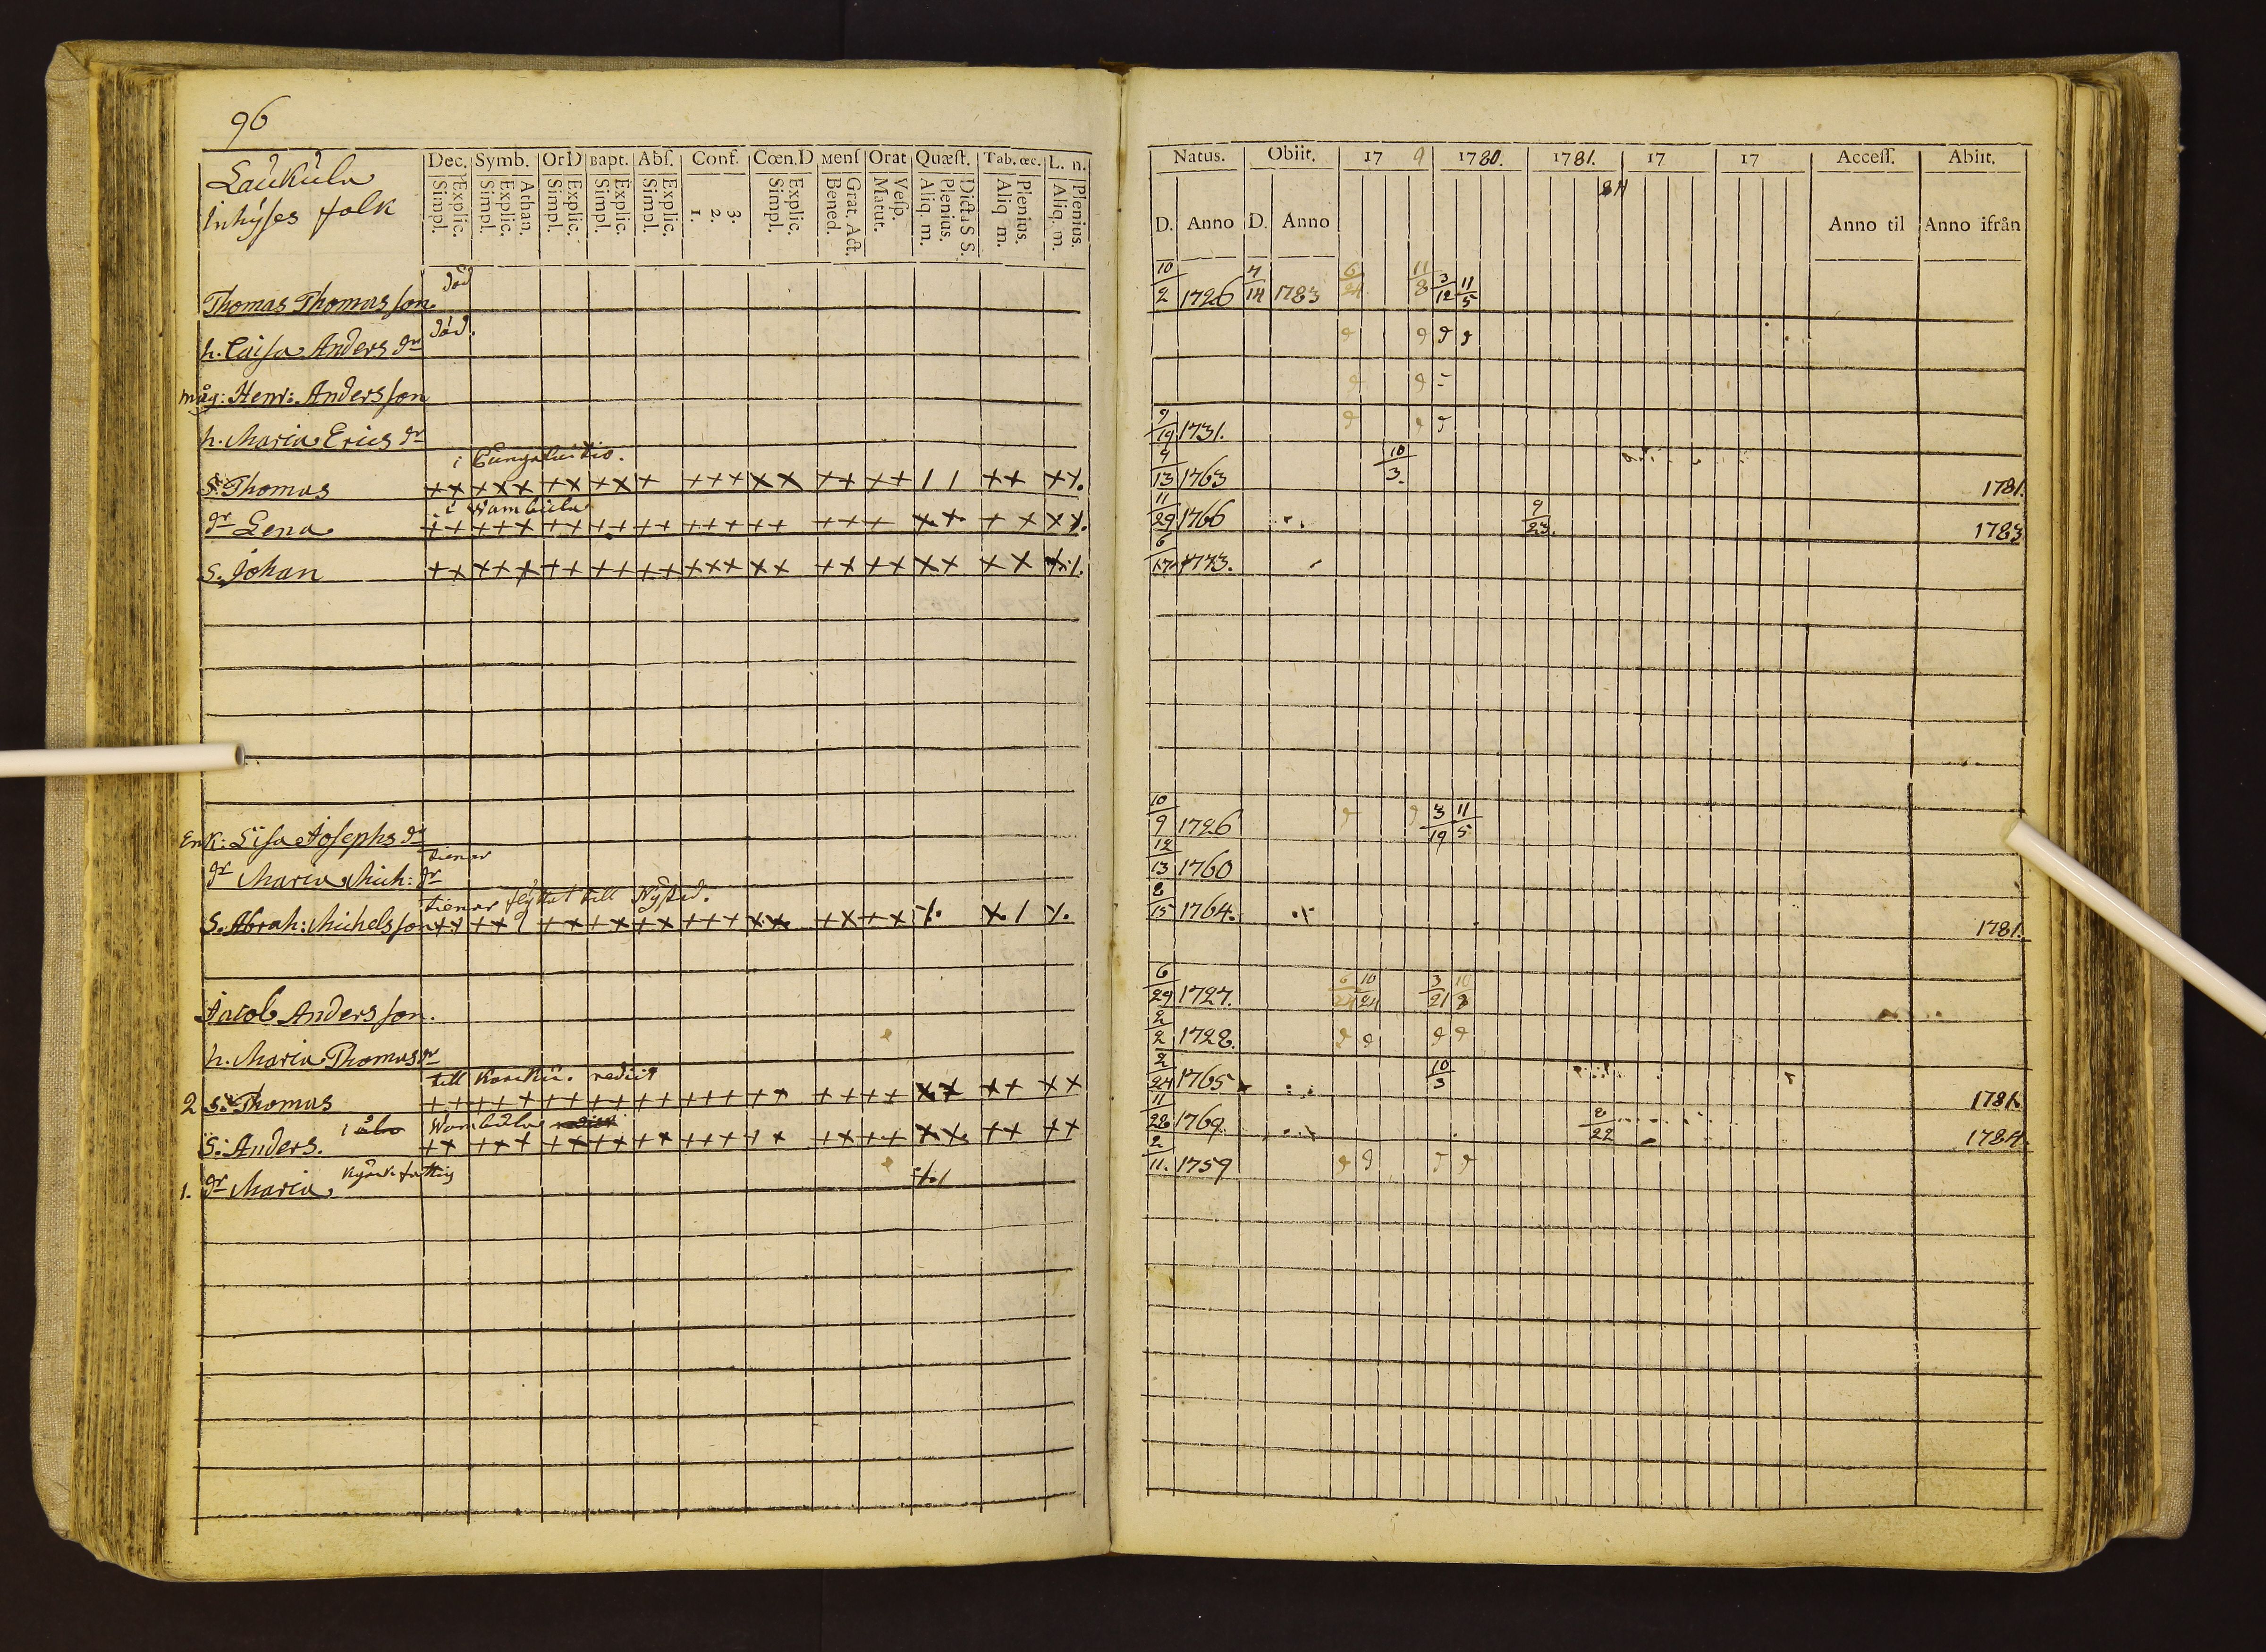 96
Laukula
inhyses folk
Dec. Symb. OrD Bapt. Abs. Conf. Cœn.D Mens Orat Quæst. Tab. œc. L. n.
Simpl. Explic. Simpl. Explic. Athan. Simpl. Explic. Simpl. Explic. Simpl. Explic. 1. 2. 3. Simpl. Explic. Bened. Grat. Act. Matut. Vesp. Aliq. m. Plenius. Dicta S S. Aliq m. Plenius. Aliq. m. Plenius.
död
Thomas Thomasson.
död.
h. Caisa Anders dr
måg: Henr: Andersson
h. Maria Erics dr
S. Thomas
dr Lena
S. Johan
Enk: Lisa Josephs dr
tienar
dr Maria Mich: dr
tienar flyttat till Nystad.
S. Abrah: Michelsson
Jacob Andersson.
h. Maria Thomas dr
till rediit
2 S. Thomas
i åbo
S: Anders.
1. dr Maria,
Natus. Obiit. 17 9 1780. 1781. 17 17 Access. Abiit.
84
D. Anno D. Anno Anno til Anno ifrån
10/2 1726 4/14 1783 6/24 11/8 3/12 11/5
9/19 1731.
13 1763 10/3. 1781.
11/29 1766 9/23. 1783
6/17 1773.
10/9 1726 3/19 11/5
12/13 1760
8/15 1764. 1781.
6/29 1727. 6/24 10/24 3/21 10/8
2/2 1728.
2/24 1765 10/3 1781.
11/28 1769 8/22 1784.
2/11. 1759